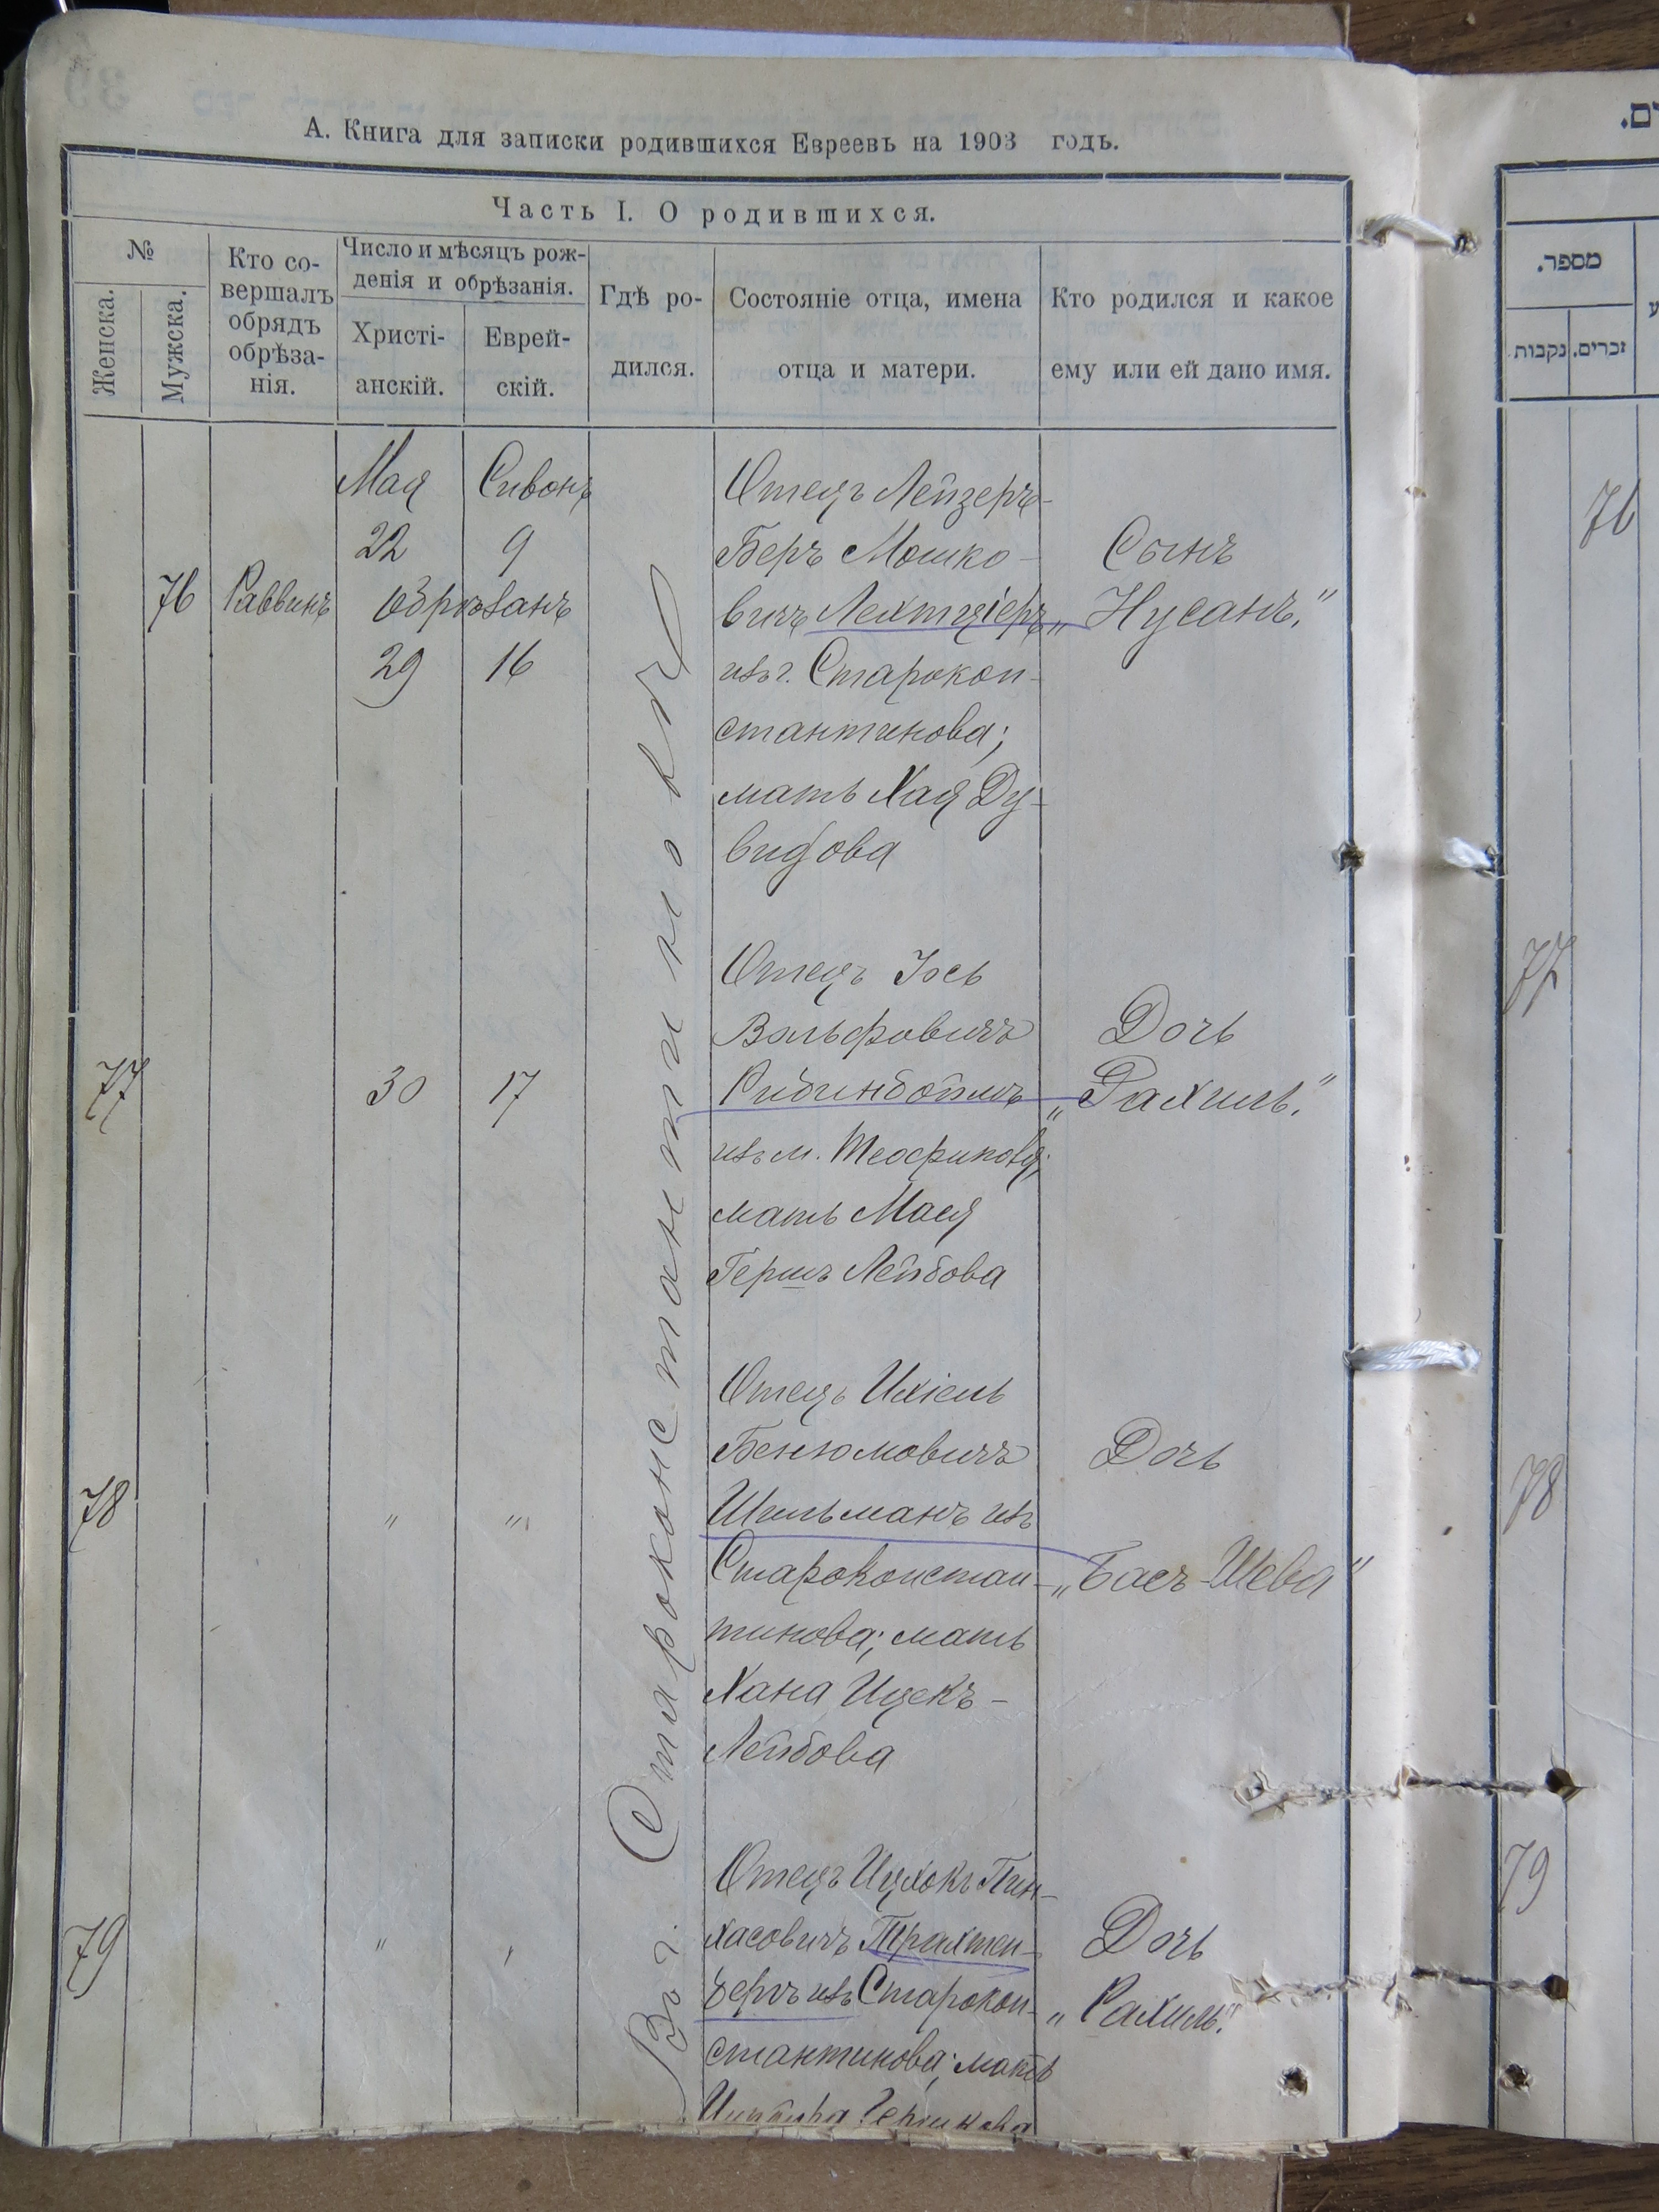 А. Книга для записки родившихся Евреевъ на 1903 годъ.
Часть I. О родившихся.
№
Женска.
Мужска.
Кто со-
вершалъ
обрядъ
обрѣза-
нія.
Число и мѣсяцъ рож-
денія и обрѣзанія.
Христі-
анскій.
Еврей-
скій.
Гдѣ ро-
дился.
Состояніе отца, имена
отца и матери.
Кто родился и какое
ему или ей дано имя.
Въ г. Староконстантиновѣ
Мая Сивонъ
22 9
76 Раввинъ Обрѣзанъ
29 16
Отецъ Лейзеръ-
Беръ Мошко-
вичъ Лехтціеръ
изъ г. Старокон-
стантинова;
мать Хая Ду-
видова
Сынъ
„Нусанъ."
77 30 17
Отецъ Іось
Вольфовичъ
Ридинбоймъ
изъ м. Теофиполя;
мать Мася
Гершъ Лейбова
Дочь
„Рахиль."
78 " "
Отецъ Ихіель
Бенюмовичъ
Шильманъ изъ
Староконстан-
тинова; мать
Хана Ицекъ-
Лейбова
Дочь
„Басъ-Шева"
79 " "
Отецъ Ицхокъ Пин-
хасовичъ Трахтен-
бергъ изъ Старокон-
стантинова; мать
Дочь
„Рахиль."
ים.
מספר.
זכרים.
נקבות
76
77
78
79